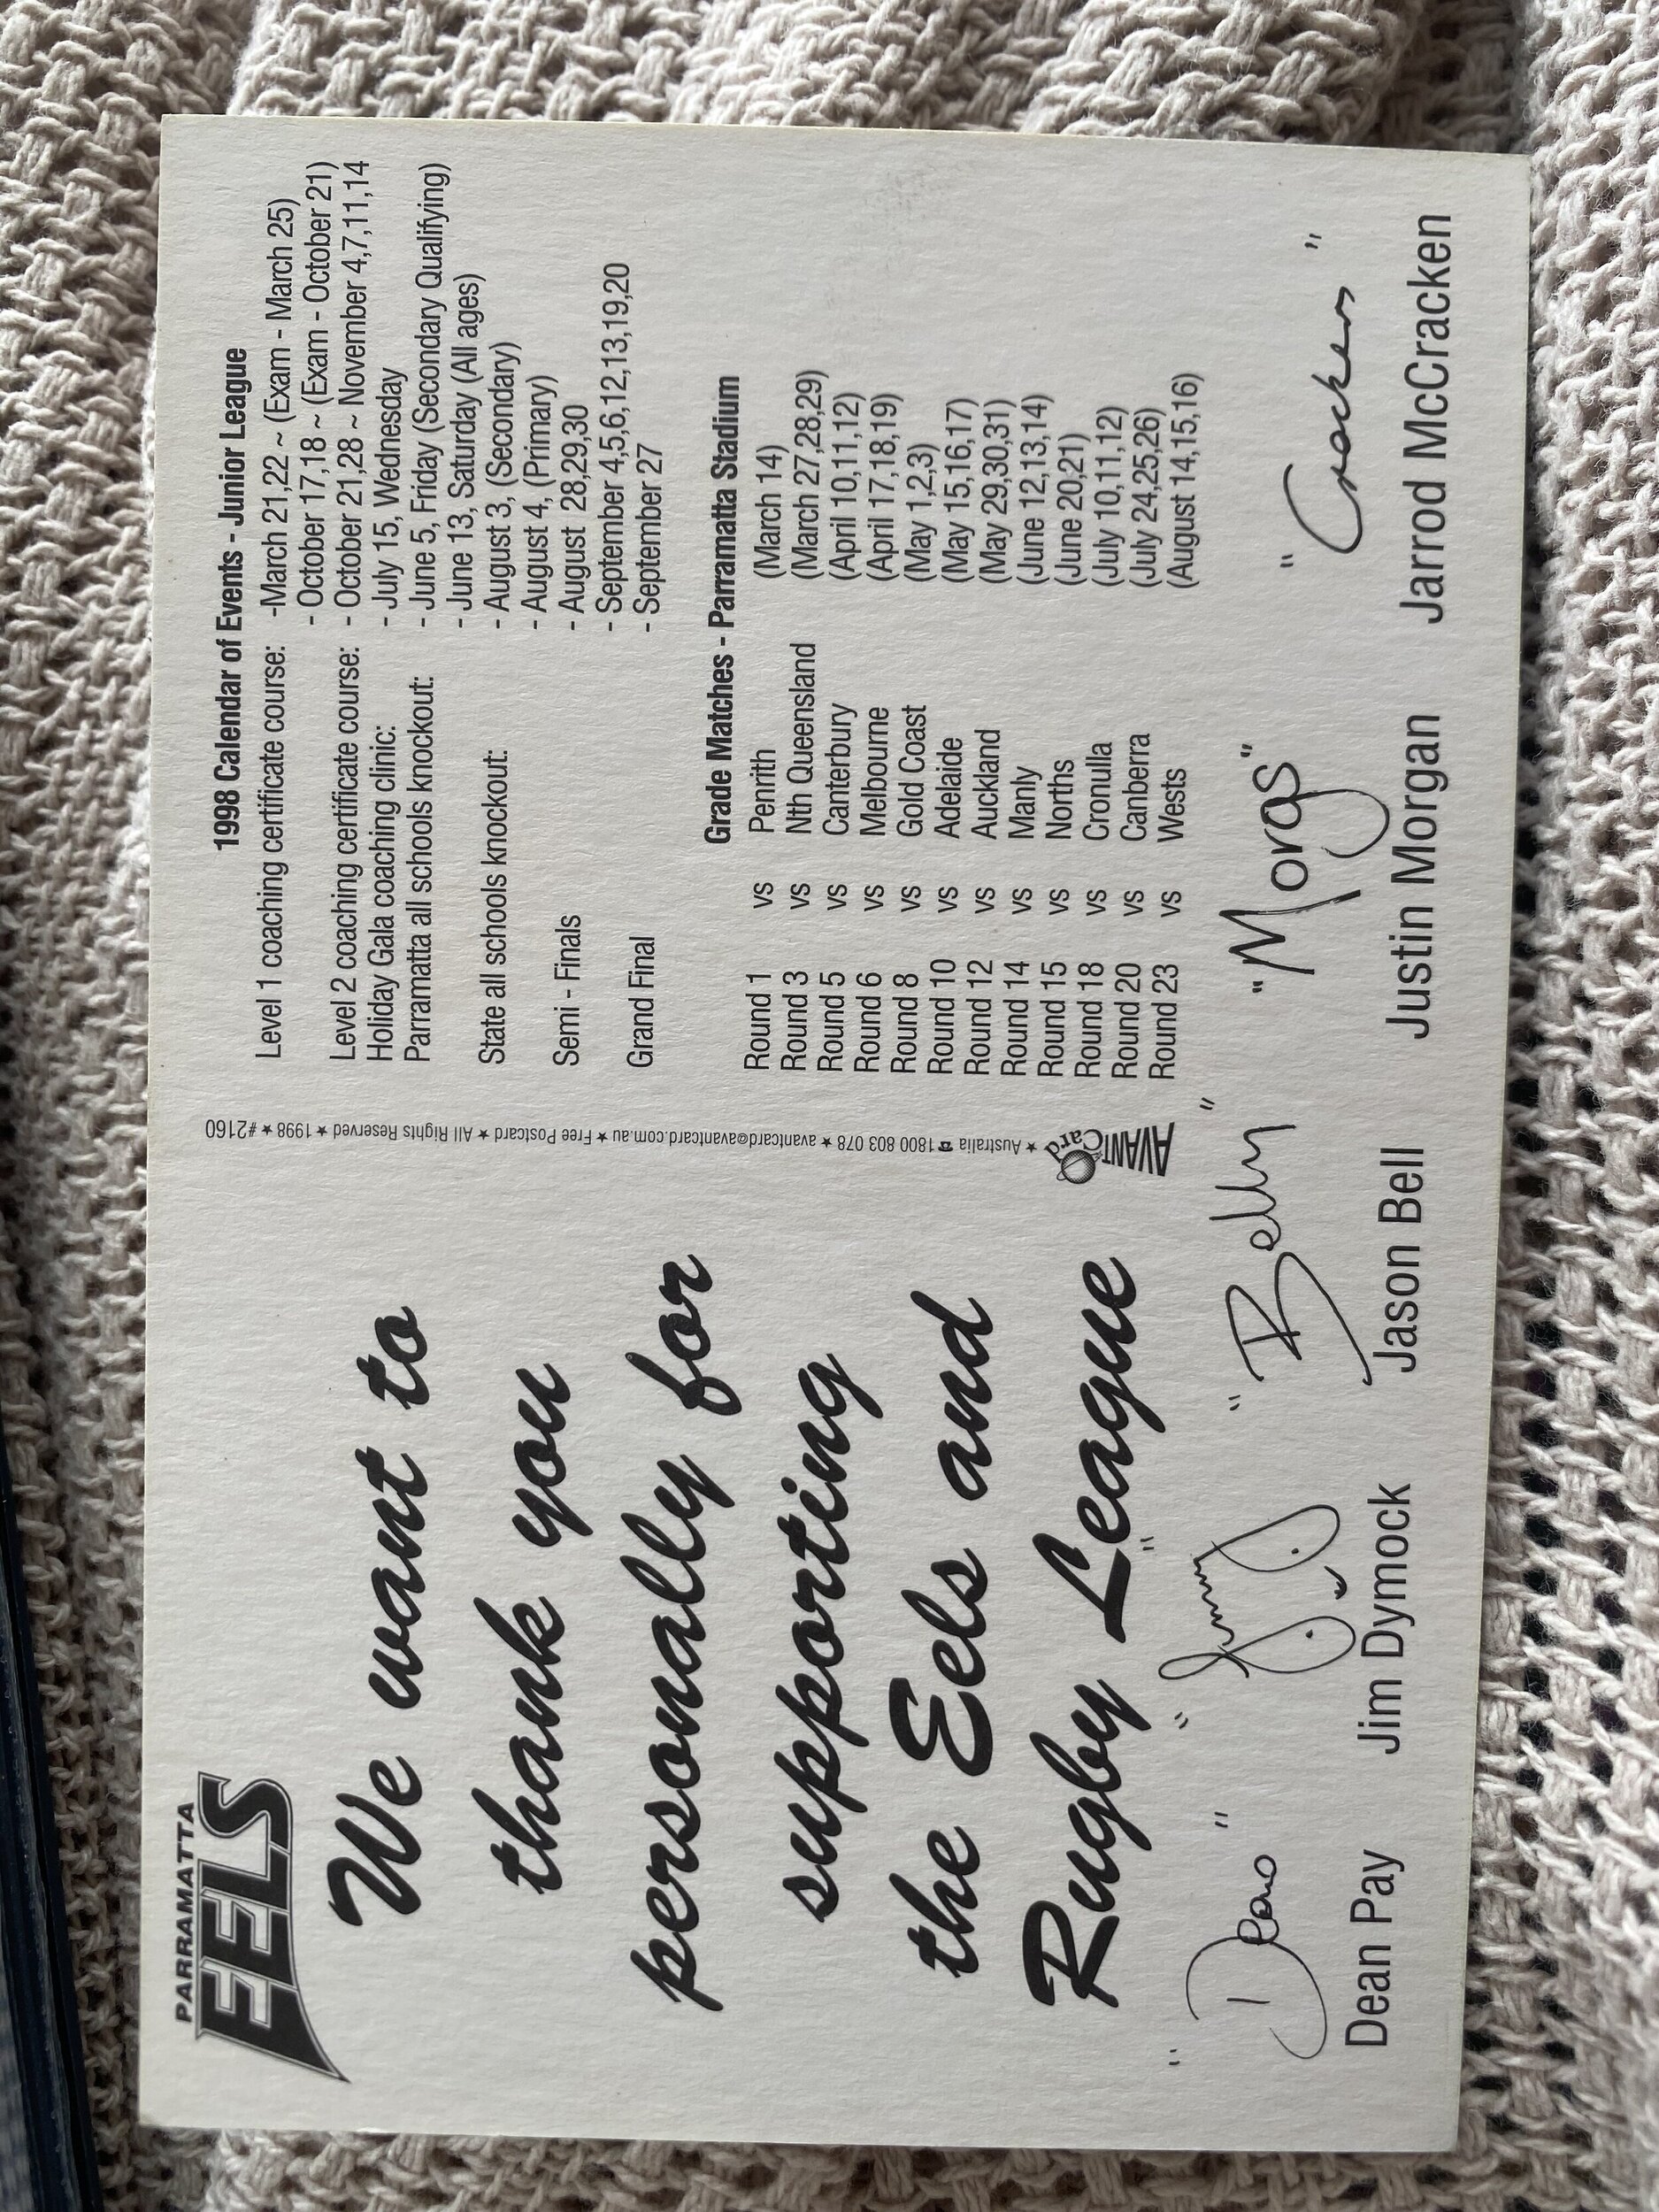 PARRAMATTA
EELS
We want to
thank you
personally for
supporting
the Eels and
Rugby League
AVANT Card ★ Australia ☎ 1800 803 078 ★ avantcard@avantcard.com.au ★ Free Postcard ★ All Rights Reserved ★ 1998 ★ #2160
1998 Calendar of Events - Junior League
Level 1 coaching certificate course: -March 21,22 ~ (Exam - March 25)
- October 17,18 ~ (Exam - October 21)
Level 2 coaching certificate course: - October 21,28 ~ November 4,7,11,14
Holiday Gala coaching clinic: - July 15, Wednesday
Parramatta all schools knockout: - June 5, Friday (Secondary Qualifying)
- June 13, Saturday (All ages)
State all schools knockout: - August 3, (Secondary)
- August 4, (Primary)
Semi - Finals - August 28,29,30
- September 4,5,6,12,13,19,20
Grand Final - September 27
Grade Matches - Parramatta Stadium
Round 1 vs Penrith (March 14)
Round 3 vs Nth Queensland (March 27,28,29)
Round 5 vs Canterbury (April 10,11,12)
Round 6 vs Melbourne (April 17,18,19)
Round 8 vs Gold Coast (May 1,2,3)
Round 10 vs Adelaide (May 15,16,17)
Round 12 vs Auckland (May 29,30,31)
Round 14 vs Manly (June 12,13,14)
Round 15 vs Norths (June 20,21)
Round 18 vs Cronulla (July 10,11,12)
Round 20 vs Canberra (July 24,25,26)
Round 23 vs Wests (August 14,15,16)
"Deano" "Jimmy" "Belly" "Morgs" "Crocker"
Dean Pay Jim Dymock Jason Bell Justin Morgan Jarrod McCracken